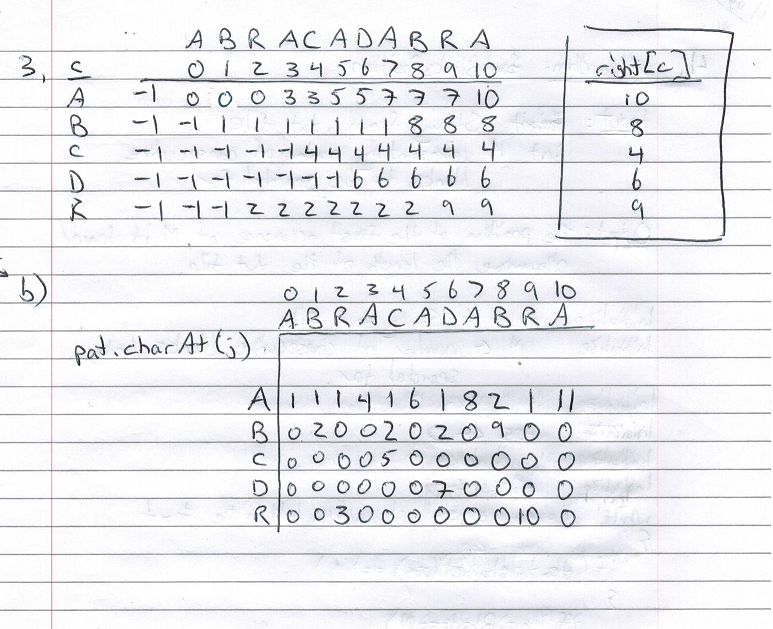 A B R A C A D A B R A
3, c 0 1 2 3 4 5 6 7 8 9 10 right[c]
A -1 0 0 0 3 3 5 5 7 7 7 10 10
B -1 -1 1 1 1 1 1 1 1 8 8 8 8
C -1 -1 -1 -1 -1 4 4 4 4 4 4 4 4
D -1 -1 -1 -1 -1 -1 -1 6 6 6 6 6 6
R -1 -1 -1 2 2 2 2 2 2 2 9 9 9
b) 0 1 2 3 4 5 6 7 8 9 10
A B R A C A D A B R A
pat.charAt(j)
A 1 1 1 4 1 6 1 8 2 1 11
B 0 2 0 0 2 0 2 0 9 0 0
C 0 0 0 0 5 0 0 0 0 0 0
D 0 0 0 0 0 0 7 0 0 0 0
R 0 0 3 0 0 0 0 0 0 10 0